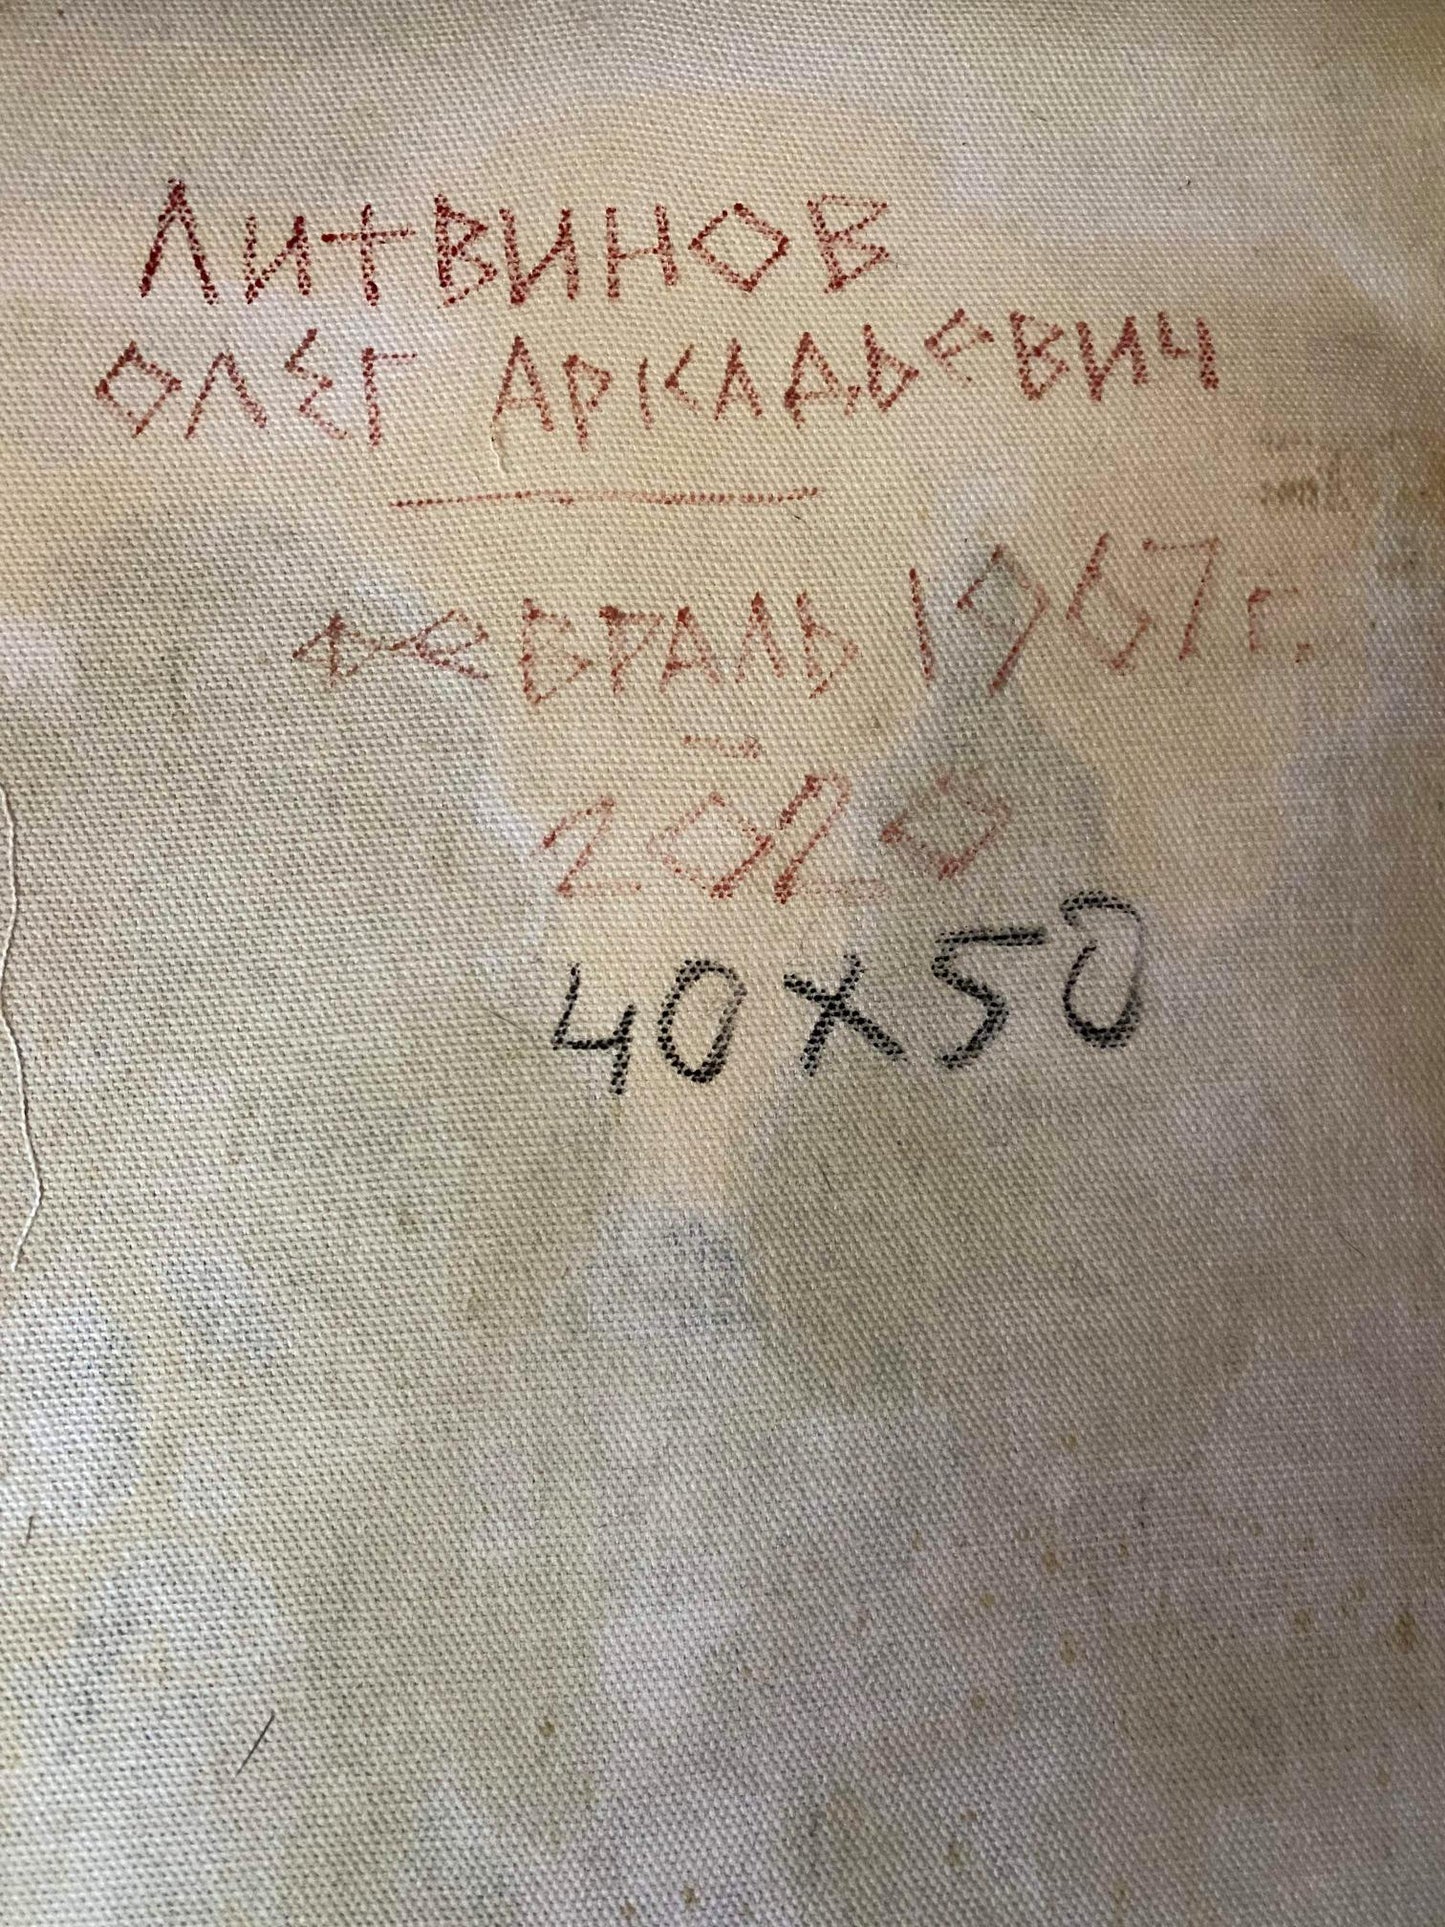 ЛИТВИНОВ
ОЛЕГ АРКАДЬЕВИЧ
ФЕВРАЛЬ 1967 г.
–
2020
40x50